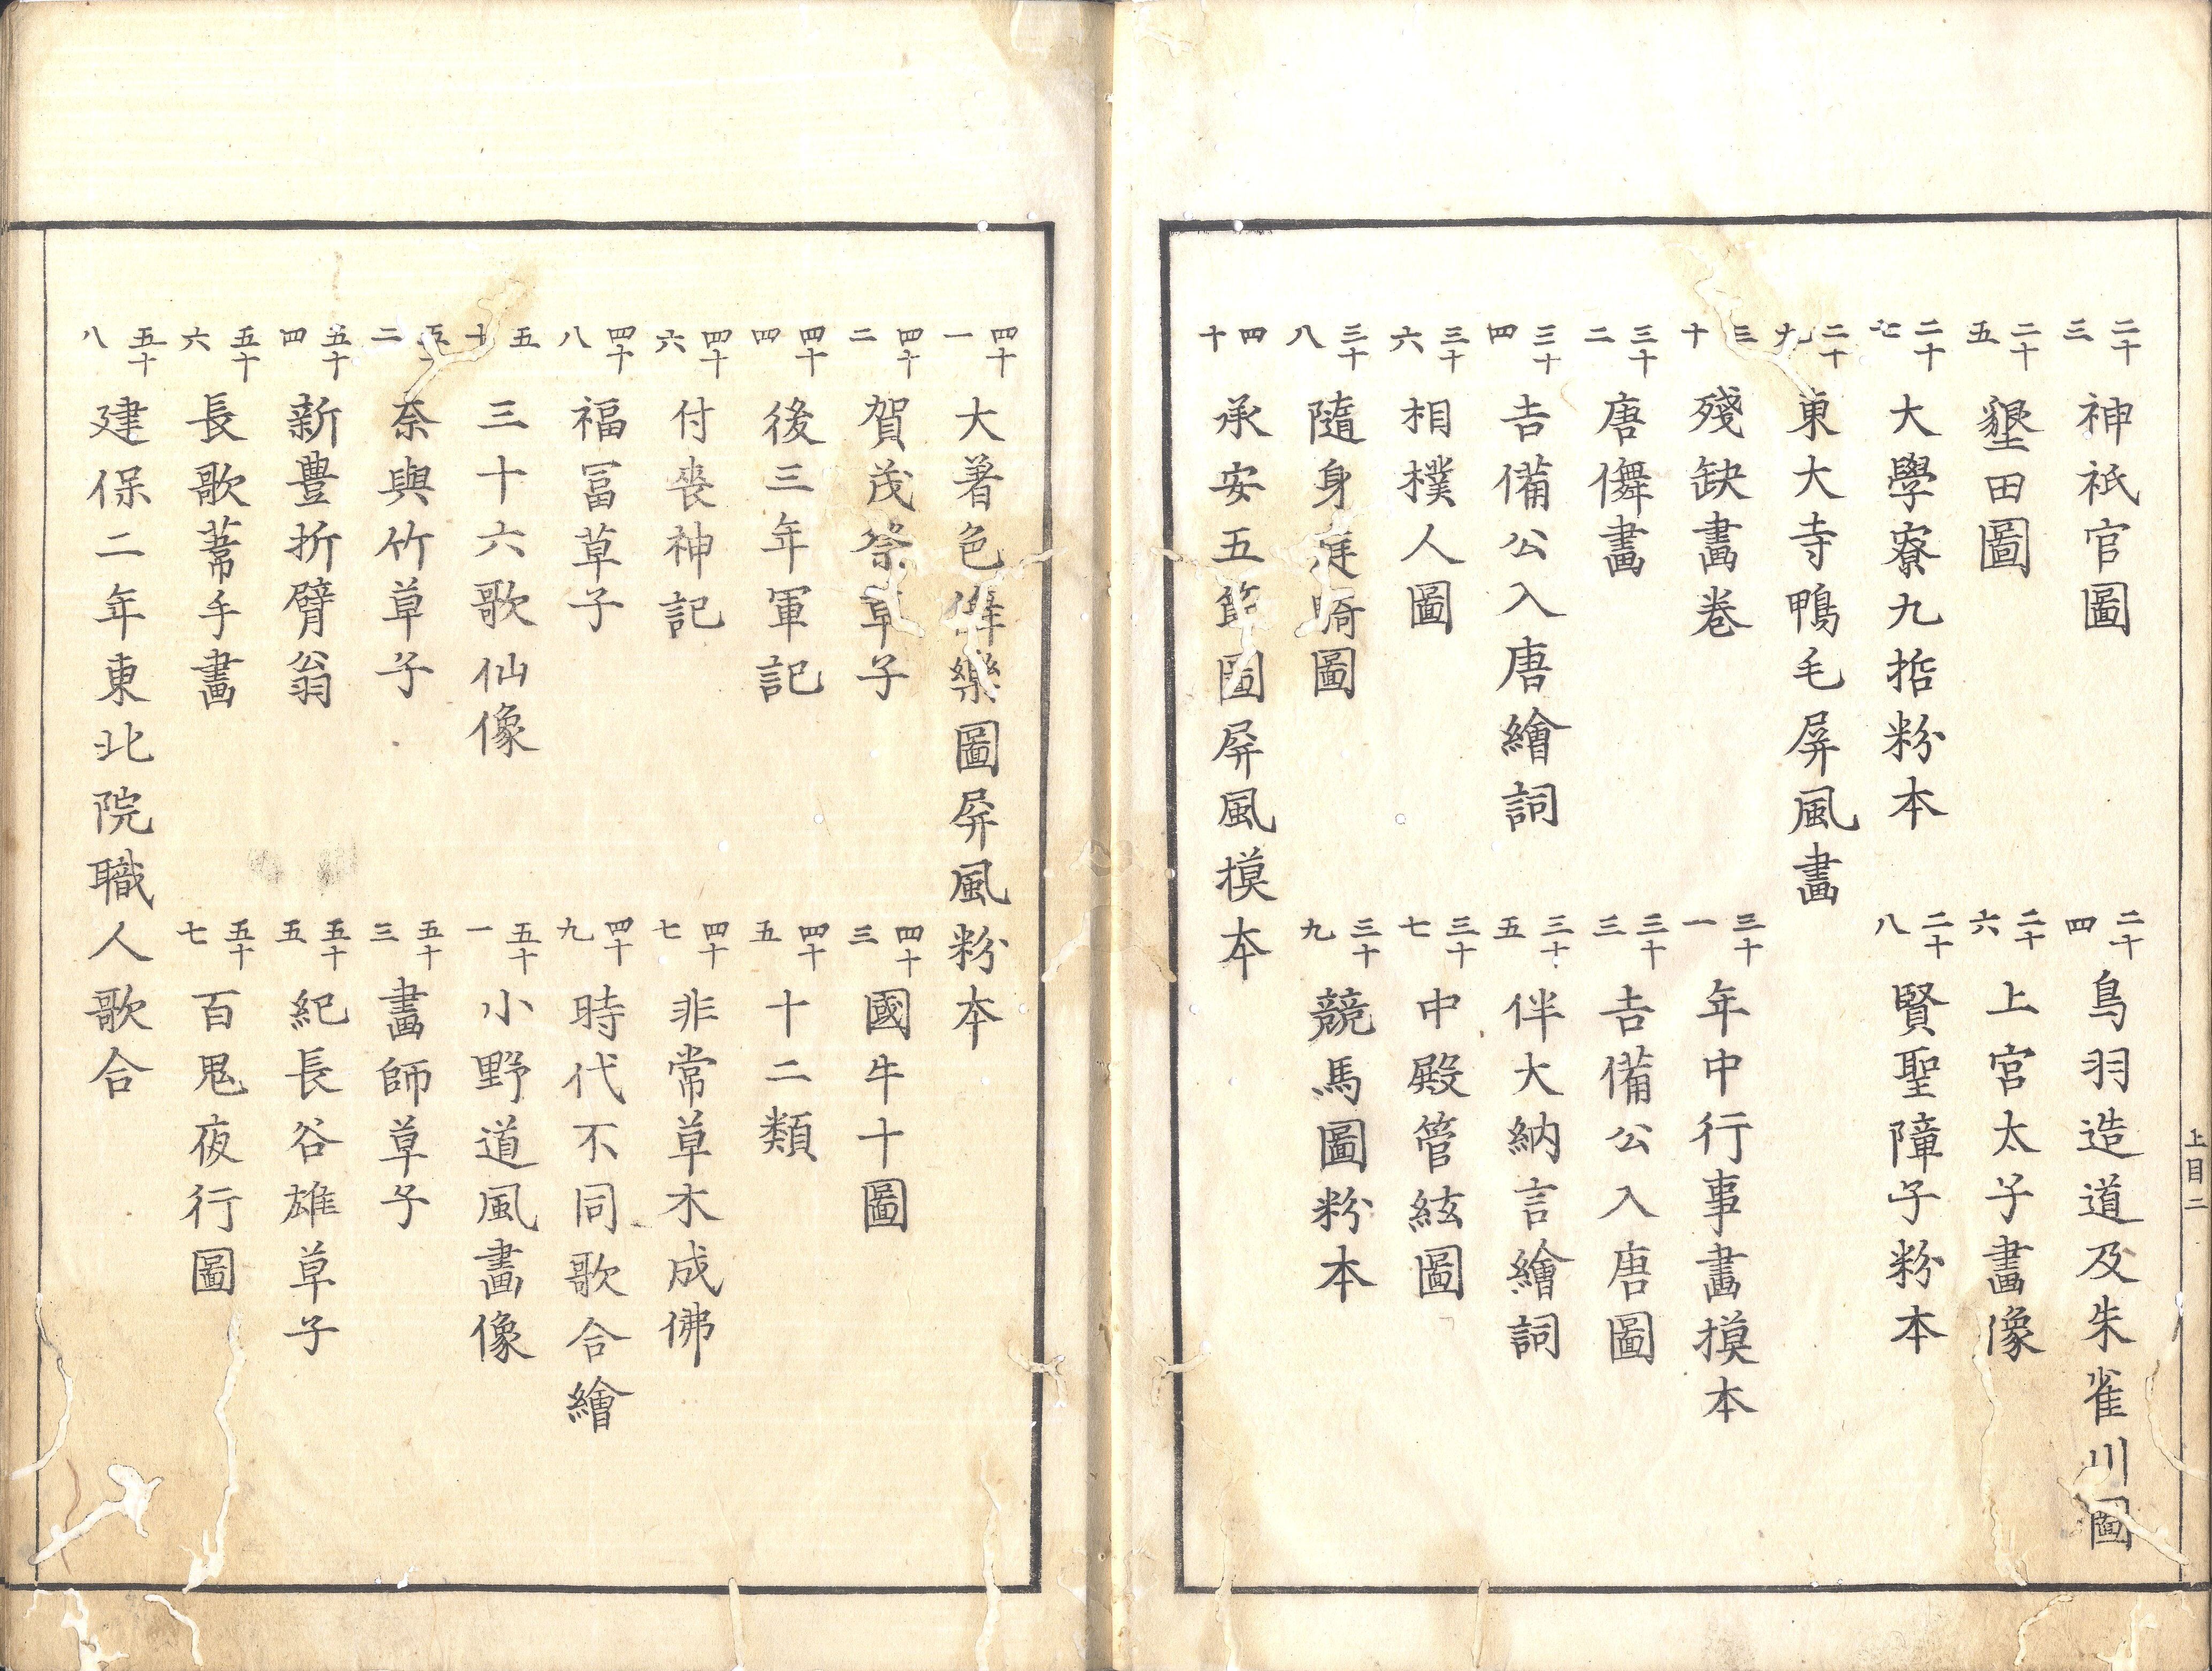 二十三 神祇官圖
二十四 鳥羽造道及朱雀川圖
二十五 墾田圖
二十六 上宮太子畫像
二十七 大學寮九哲粉本
二十八 賢聖障子粉本
二十九 東大寺鴨毛屏風畫
三十 殘缺畫卷
三十一 年中行事畫摸本
三十二 唐儛畫
三十三 吉備公入唐圖
三十四 吉備公入唐繪詞
三十五 伴大納言繪詞
三十六 相撲人圖
三十七 中殿管絃圖
三十八 隨身庭騎圖
三十九 競馬圖粉本
四十 承安五節圖屏風摸本
上目二
四十一 大著色儛樂圖屏風粉本
四十二 賀茂祭草子
四十三 國牛十圖
四十四 後三年軍記
四十五 十二類
四十六 付喪神記
四十七 非常草木成佛
四十八 福冨草子
四十九 時代不同歌合繪
五十 三十六歌仙像
五十一 小野道風畫像
五十二 奈與竹草子
五十三 畫師草子
五十四 新豊折臂翁
五十五 紀長谷雄草子
五十六 長歌葦手畫
五十七 百鬼夜行圖
五十八 建保二年東北院職人歌合